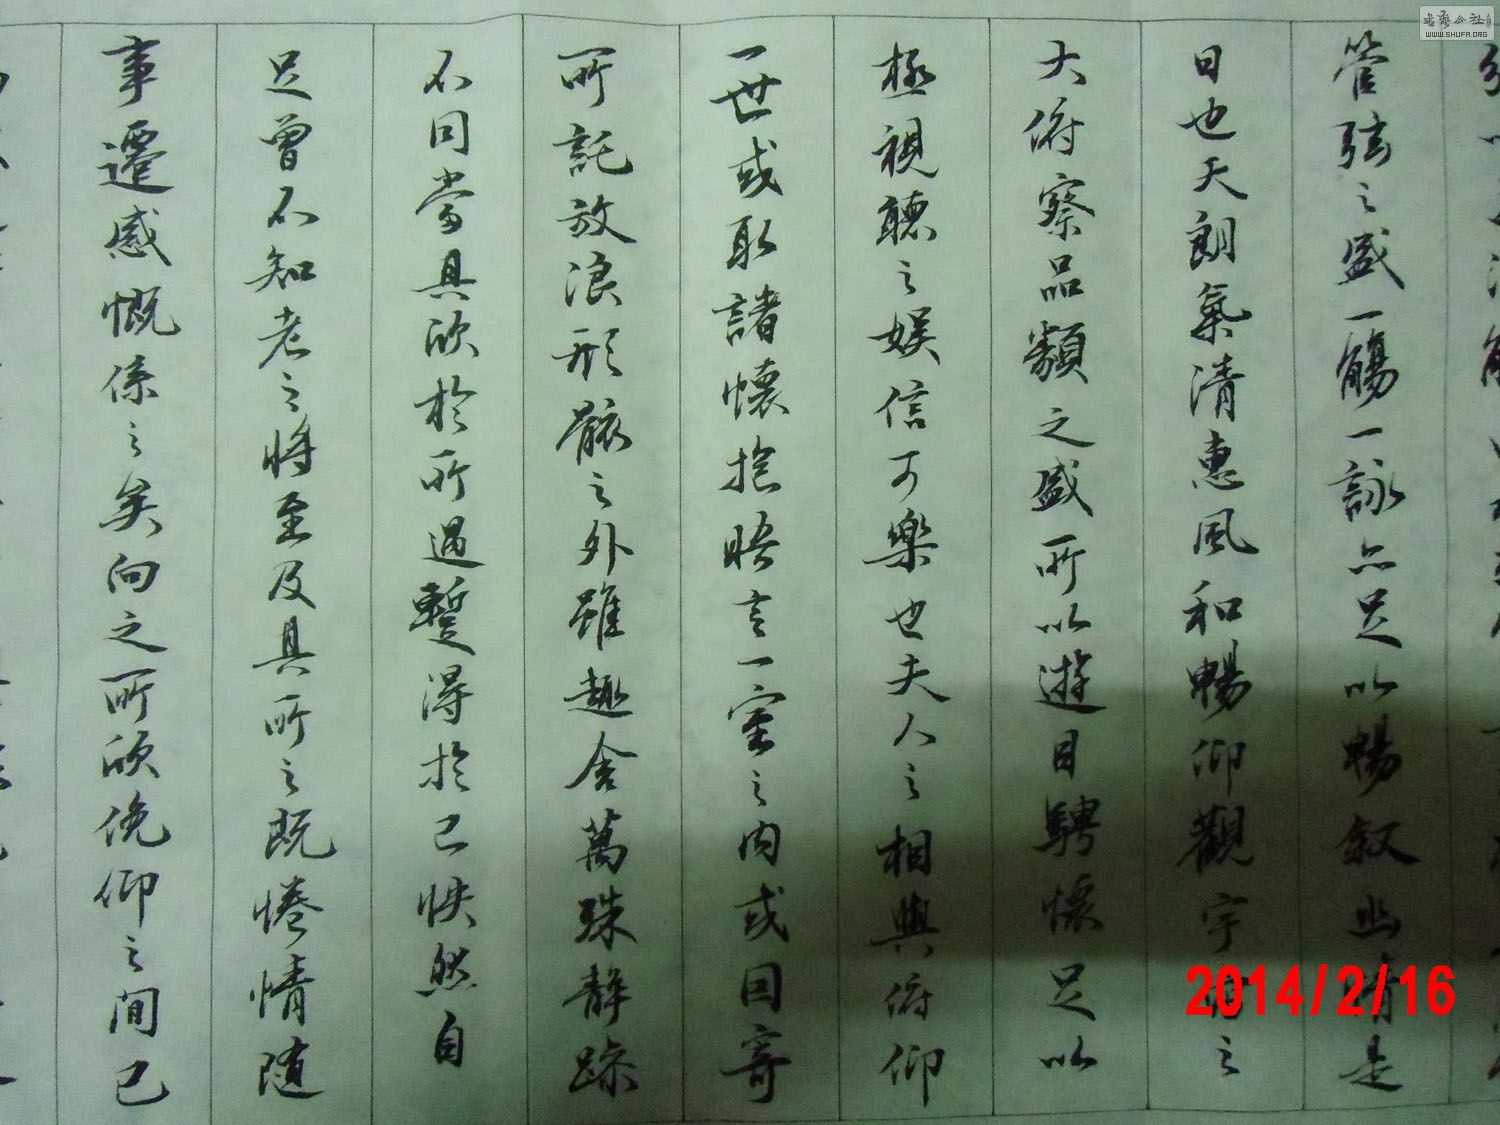 管弦之盛一觴一詠亦足以暢叙幽情是
日也天朗氣清惠風和暢仰觀宇宙之
大俯察品類之盛所以遊目騁懷足以
極視聽之娛信可樂也夫人之相與俯仰
一世或取諸懷抱晤言一室之内或因寄
所託放浪形骸之外雖趣舍萬殊静躁
不同當其欣於所遇暫得於己怏然自
足曾不知老之將至及其所之既惓情隨
事遷感慨係之矣向之所欣俛仰之間已
2014/2/16
书法公社
WWW.SHUFA.ORG